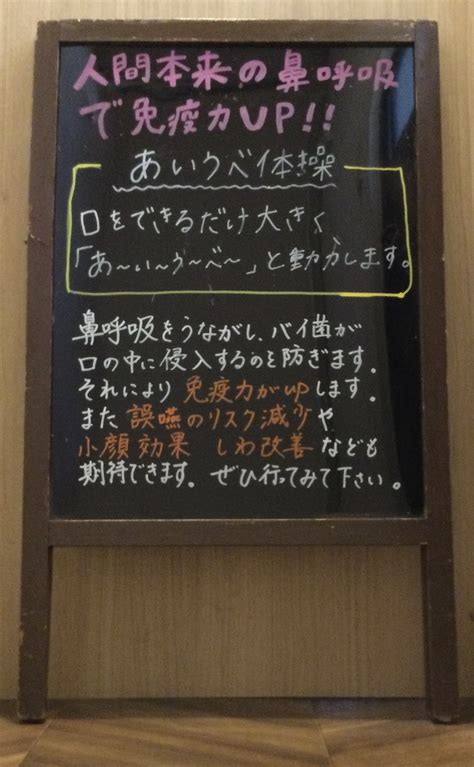 人間本来の鼻呼吸
で免疫力UP!!
あいうべ体操
口をできるだけ大きく
「あ〜い〜う〜べ〜」と動かします。
鼻呼吸をうながし、バイ菌が
口の中に侵入するのを防ぎます。
それにより免疫力がupします。
また誤嚥のリスク減少や
小顔効果 しわ改善なども
期待できます。ぜひ行ってみて下さい。